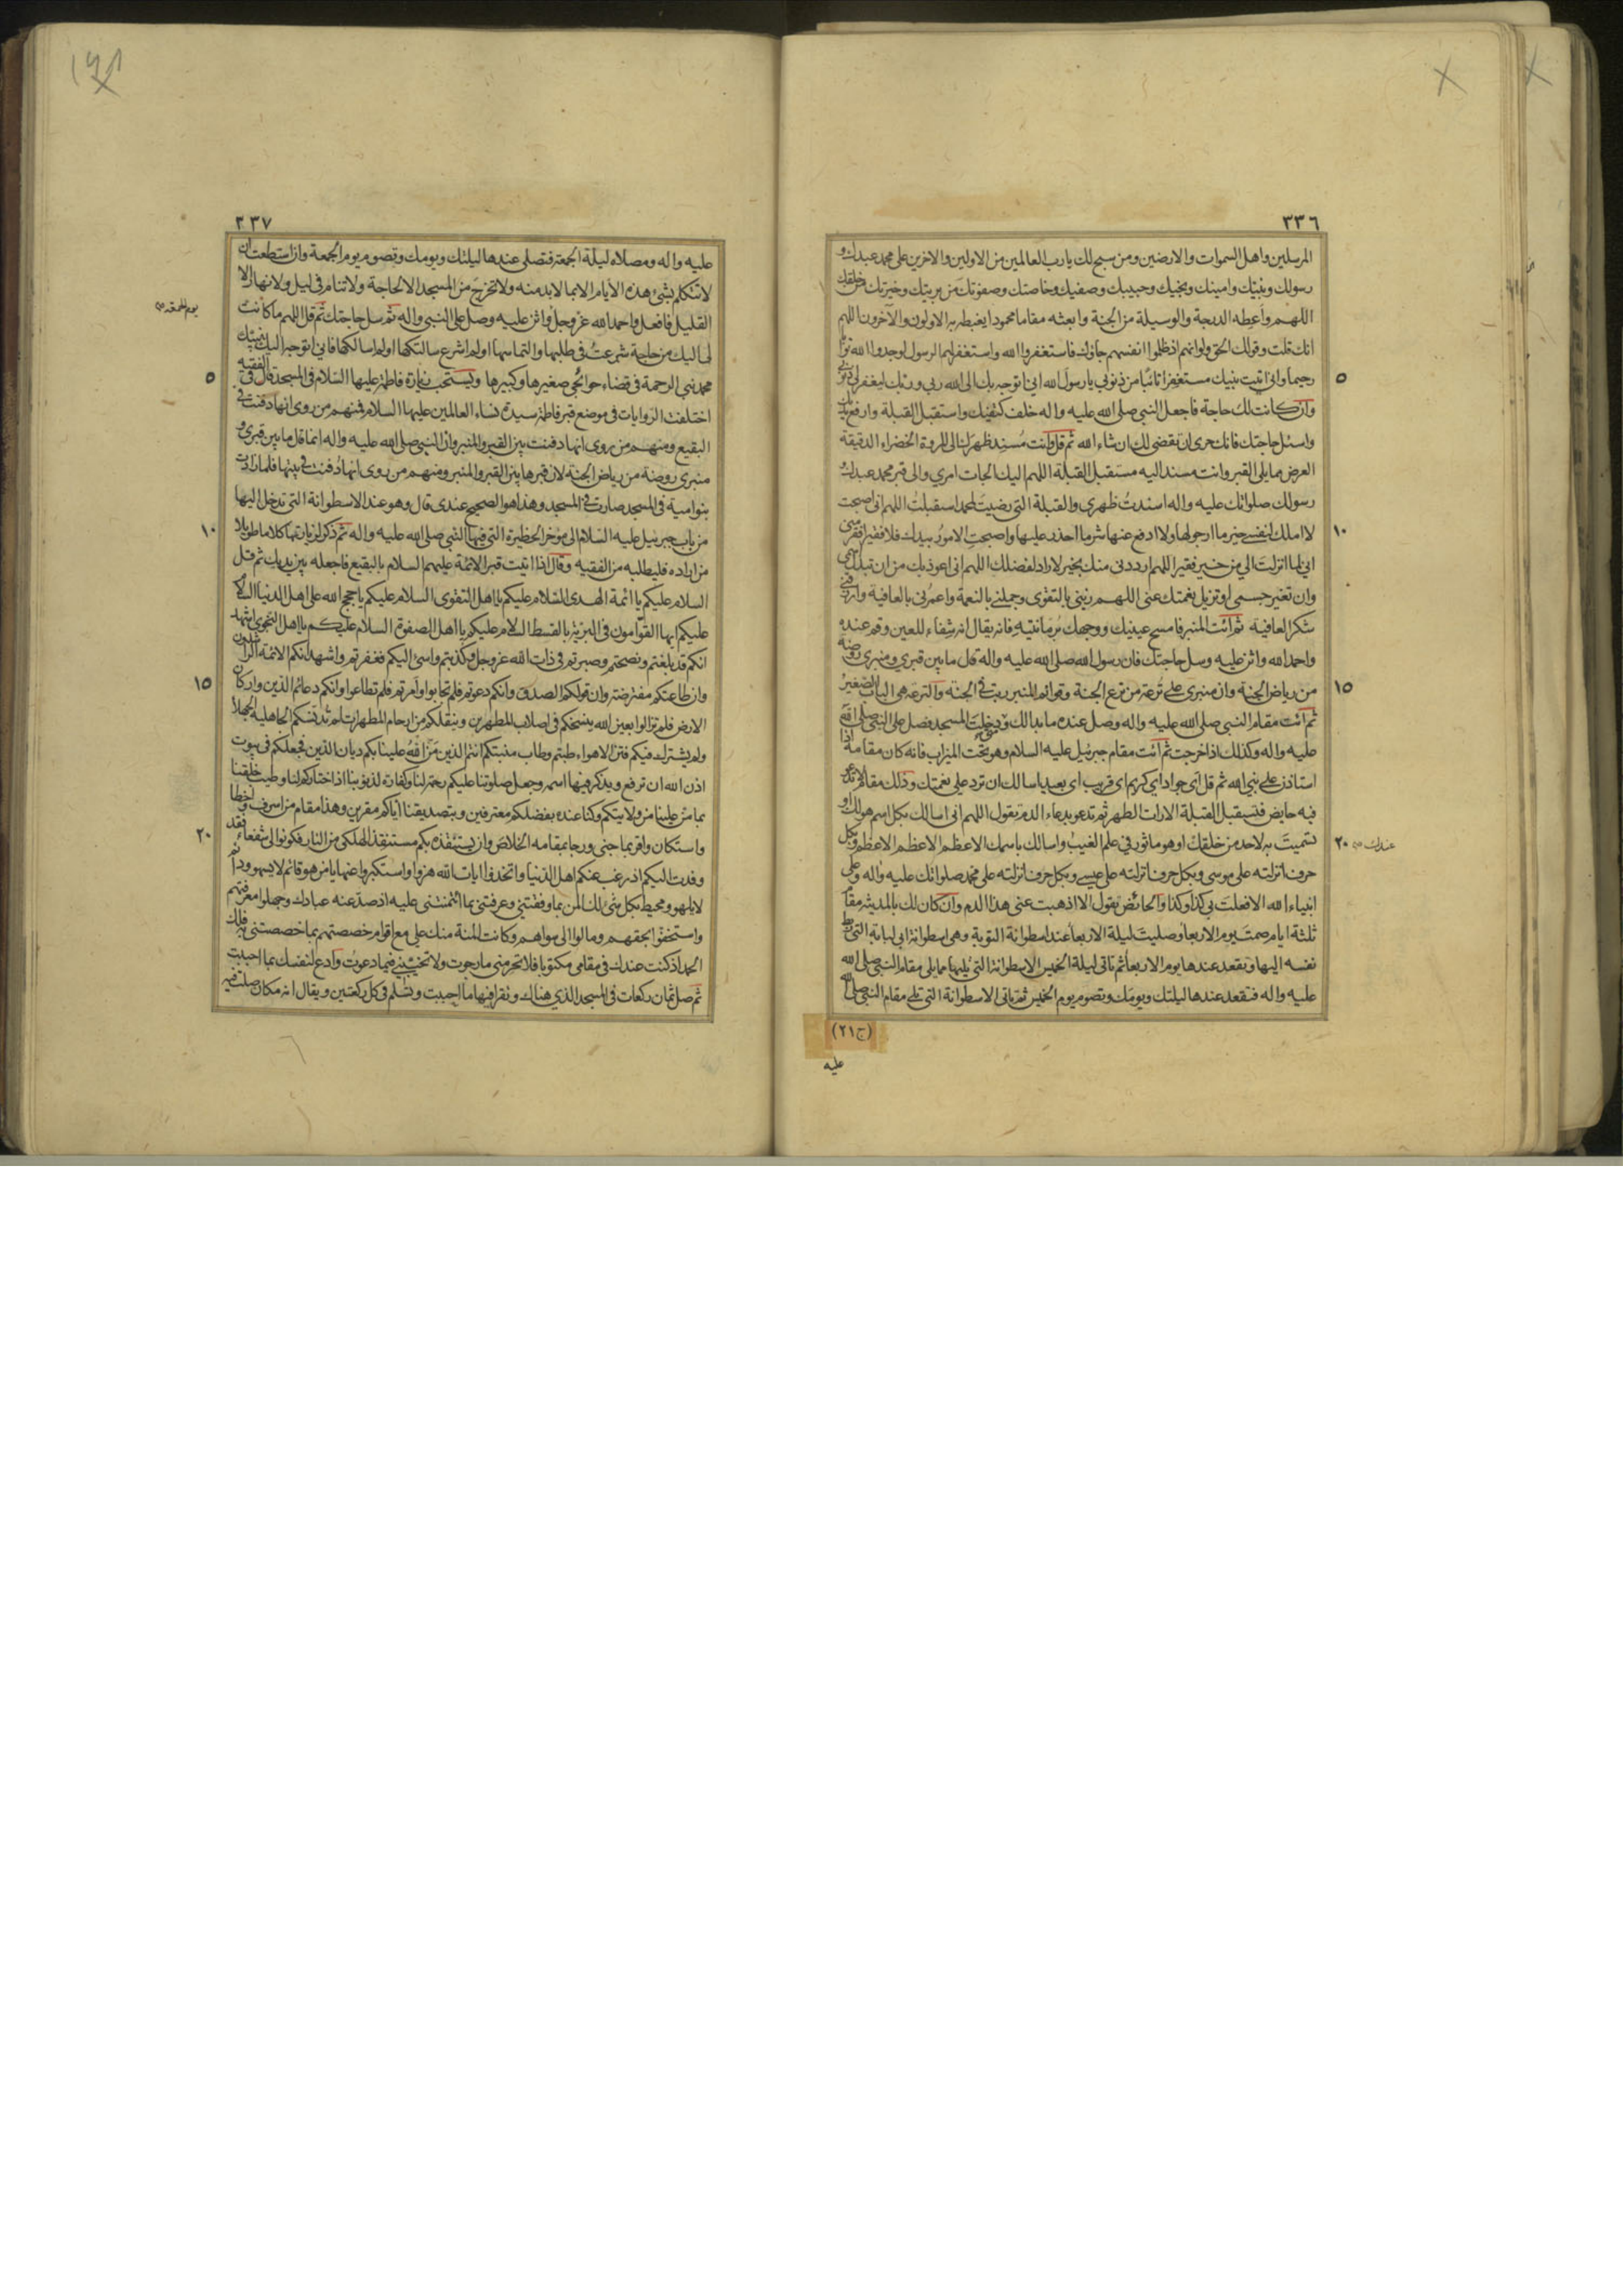 ٣٣٦
المرسلين واهل السموات والارضين ومن سبح لك يارب العالمين من الاولين والاخرين على محمد عبدك و
رسولك ونبيّك وامينك ونجيك وحبيبك وصفيك وخاصتك وصفوتك من بريتك وخيرتك من خلقك
اللهم واعطه الدرجة والوسيلة من الجنة وابعثه مقاما محمودا يغبطه به الاولون والآخرون اللهم
انك قلت وقولك الحق ولو انهم اذ ظلموا انفسهم جاؤك فاستغفروا الله واستغفر لهم الرسول لوجدوا الله توابا
رحيما وانى اتيت نبيك مستغفرا تائبا من ذنوبى يارسول الله انى اتوجه بك الى الله ربى وربك ليغفر لى ذنوبى
٥
وان كانت لك حاجة فاجعل النبى صلى الله عليه واله خلف كتفيك واستقبل القبلة وارفع يديك
واسئل حاجتك فانك حرى ان تقضى لك ان شاء الله ثم قل وانت مسند ظهرك الى المروة الخضراء الدقيقة
العرض مما يلى القبر وانت مسند اليه مستقبل القبلة اللهم اليك الجات امري والى قبر محمد عبدك و
رسولك صلواتك عليه واله اسندت ظهري والقبلة التى رضيت لمحمد استقبلت اللهم انى اصبحت
لا املك لنفسى خير ما ارجو لها ولا ادفع عنها شر ما احذر عليها واصبحت الامور بيدك فلا فقير افقر منى
١٠
انى لما انزلت الي من خير فقير اللهم ارددنى منك بخير لا راد لفضلك اللهم انى اعوذ بك من ان تبدل اسمى
وان تغير جسمى او تزيل نعمتك عنى اللهم زينى بالتقوى وجملنى بالنعمة واعمرنى بالعافية وارزقنى
شكر العافية ثم ائت المنبر فامسح عينيك ووجهك برمانتيه فانه يقال انه شفاء للعين وقم عنده
واحمد الله واثن عليه وسل حاجتك فان رسول الله صلى الله عليه واله قال ما بين قبري ومنبري روضة
من رياض الجنة وان منبرى على ترعة من ترع الجنة وقوائم المنبر ربت فى الجنة والترعة هى الباب الصغير
١٥
ثم ائت مقام النبى صلى الله عليه واله وصل عنده ما بدا لك ومتى دخلت المسجد فصل على النبى صلى الله
عليه واله وكذلك اذا خرجت ثم ائت مقام جبرئيل عليه السلام وهو تحت الميزاب فانه كان مقامه اذا
استاذن على نبى الله ثم قل اى جواد اي كريم اى قريب اى بعيد اسالك ان ترد على نعمتك وذلك مقام لا تدعو
فيه حايض فتستقبل القبلة الا رات الطهر ثم تدعو بدعاء الدم تقول اللهم انى اسالك بكل اسم هو لك او
تسميت به لاحد من خلقك او هو ماثور فى علم الغيب واسالك باسمك الاعظم الاعظم الاعظم وبكل
٢٠
عندك
حرف انزلته على موسى وبكل حرف انزلته على عيسى وبكل حرف انزلته على محمد صلواتك عليه واله وعلى
انبياء الله الا فعلت بى كذا وكذا والحائض تقول الا اذهبت عنى هذا الدم وان كان لك بالمدينة مقام
ثلثة ايام صمت يوم الاربعا وصليت ليلة الاربعا عند اسطوانة التوبة وهى اسطوانة ابى لبابة التى ربط
نفسه اليها وتقعد عندها يوم الاربعا ثم تاتى ليلة الخميس الاسطوانة التى يليها مما يلى مقام النبى صلى الله
عليه واله فتقعد عندها ليلتك ويومك وتصوم يوم الخميس ثم تاتى الاسطوانة التى تلى مقام النبى صلى الله
(ج٢١)
عليه
٣٣٧
عليه واله ومصلاه ليلة الجمعة فتصلى عندها ليلتك ويومك وتصوم يوم الجمعة وان استطعت ان
لا تتكلم بشئ هذه الايام الا بما لابد منه ولا تخرج من المسجد الا لحاجة ولا تنام فى ليل ولا نهار الا
القليل فافعل واحمد الله عز وجل واثن عليه وصل على النبى واله ثم سل حاجتك ثم قل اللهم ما كانت
لى اليك من حاجة شرعت فى طلبها والتماسها او لم اشرع سالتكها او لم اسالكها فانى اتوجه اليك بنبيك
محمد نبى الرحمة فى قضاء حوائجى صغيرها وكبيرها ويستحب زيارة فاطمة عليها السلام فى المسجد قال فى الفقيه
٥
اختلفت الروايات فى موضع قبر فاطمة سيدة نساء العالمين عليها السلام فمنهم من روى انها دفنت فى
البقيع ومنهم من روى انها دفنت بين القبر والمنبر وان النبى صلى الله عليه واله انما قال ما بين قبرى و
منبرى روضة من رياض الجنة لان قبرها بين القبر والمنبر ومنهم من روى انها دفنت فى بيتها فلما زادت
بنو امية فى المسجد صارت فى المسجد وهذا هو الصحيح عندى قال وهو عند الاسطوانة التى تدخل اليها
من باب جبرئيل عليه السلام الى مؤخر الحظيرة التى فيها النبى صلى الله عليه واله ثم ذكر لزيارتها كلاما طويلا
١٠
من اراده فليطلبه من الفقيه وقال اذا اتيت قبر الائمة عليهم السلام بالبقيع فاجعله بين يديك ثم قل
السلام عليكم يا ائمة الهدى السلام عليكم يا اهل التقوى السلام عليكم يا حجج الله على اهل الدنيا السلام
عليكم ايها القوامون فى البرية بالقسط السلام عليكم يا اهل الصفوة السلام عليكم يا اهل النجوى اشهد
انكم قد بلغتم ونصحتم وصبرتم فى ذات الله عز وجل وكذبتم واسئ اليكم فغفرتم واشهد انكم الائمة الراشدون
وان طاعتكم مفترضة وان قولكم الصدق وانكم دعوتم فلم تجابوا وامرتم فلم تطاعوا وانكم دعائم الدين واركان
١٥
الارض فلم تزالوا بعين الله ينسخكم فى اصلاب المطهرين وينقلكم من ارحام المطهرات لم تدنسكم الجاهلية الجهلاء
ولم يشترك فيكم فتن الاهواء طبتم وطاب منبتكم انتم الذين من الله علينا بكم ديان الدين فجعلكم فى بيوت
اذن الله ان ترفع ويذكر فيها اسمه وجعل صلوتنا عليكم رحمة لنا وكفارة لذنوبنا اذ اختاركم لنا وطيب خلقنا
بما من علينا من ولايتكم وكنا عنده بفضلكم معترفين وبتصديقنا اياكم مقرين وهذا مقام من اسرف واخطا
واستكان واقر بما جنى ورجا بمقامه الخلاص وان يستنقذه بكم مستنقذ الهلكى من النار فكونوا لى شفعاء فقد
٢٠
وفدت اليكم اذ رغب عنكم اهل الدنيا واتخذوا ايات الله هزوا واستكبروا عنها يا من هو قائم لا يسهو ودائم
لا يلهو ومحيط بكل شئ لك المن بما وفقتنى وعرفتنى بما ائتمنتنى عليه اذ صد عنه عبادك وجهلوا معرفتهم
واستخفوا بحقهم ومالوا الى سواهم وكانت المنة منك على مع اقوام خصصتهم بما خصصتنى به فلك
الحمد اذ كنت عندك فى مقامى مكتوبا فلا تحرمنى ما رجوت ولا تخيبنى فيما دعوت وادع لنفسك بما احببت
ثم صل ثمان ركعات فى المسجد الذي هناك وتقرا فيها ما احببت وتسلم فى كل ركعتين ويقال انه مكان صلت فيه